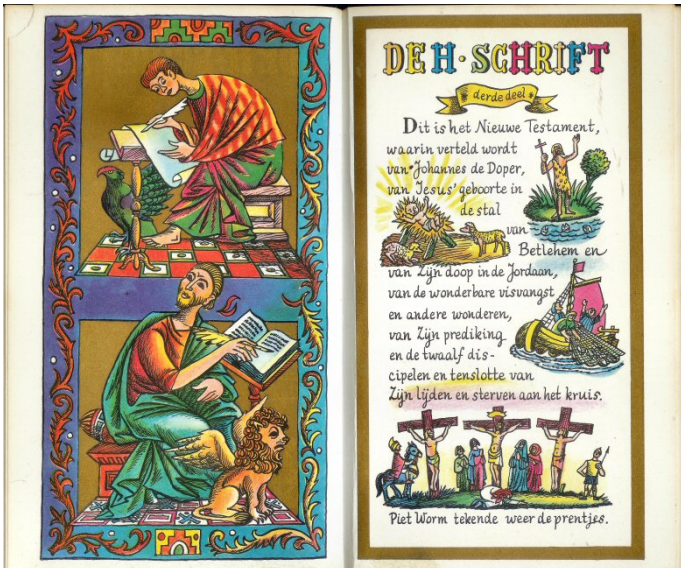 DE H · SCHRIFT
derde deel
Dit is het Nieuwe Testament,
waarin verteld wordt
van Johannes de Doper,
van Jesus' geboorte in
de stal
van
Betlehem en
van Zijn doop in de Jordaan,
van de wonderbare visvangst
en andere wonderen,
van Zijn prediking
en de twaalf dis-
cipelen en tenslotte van
Zijn lijden en sterven aan het kruis.
Piet Worm tekende weer de prentjes.